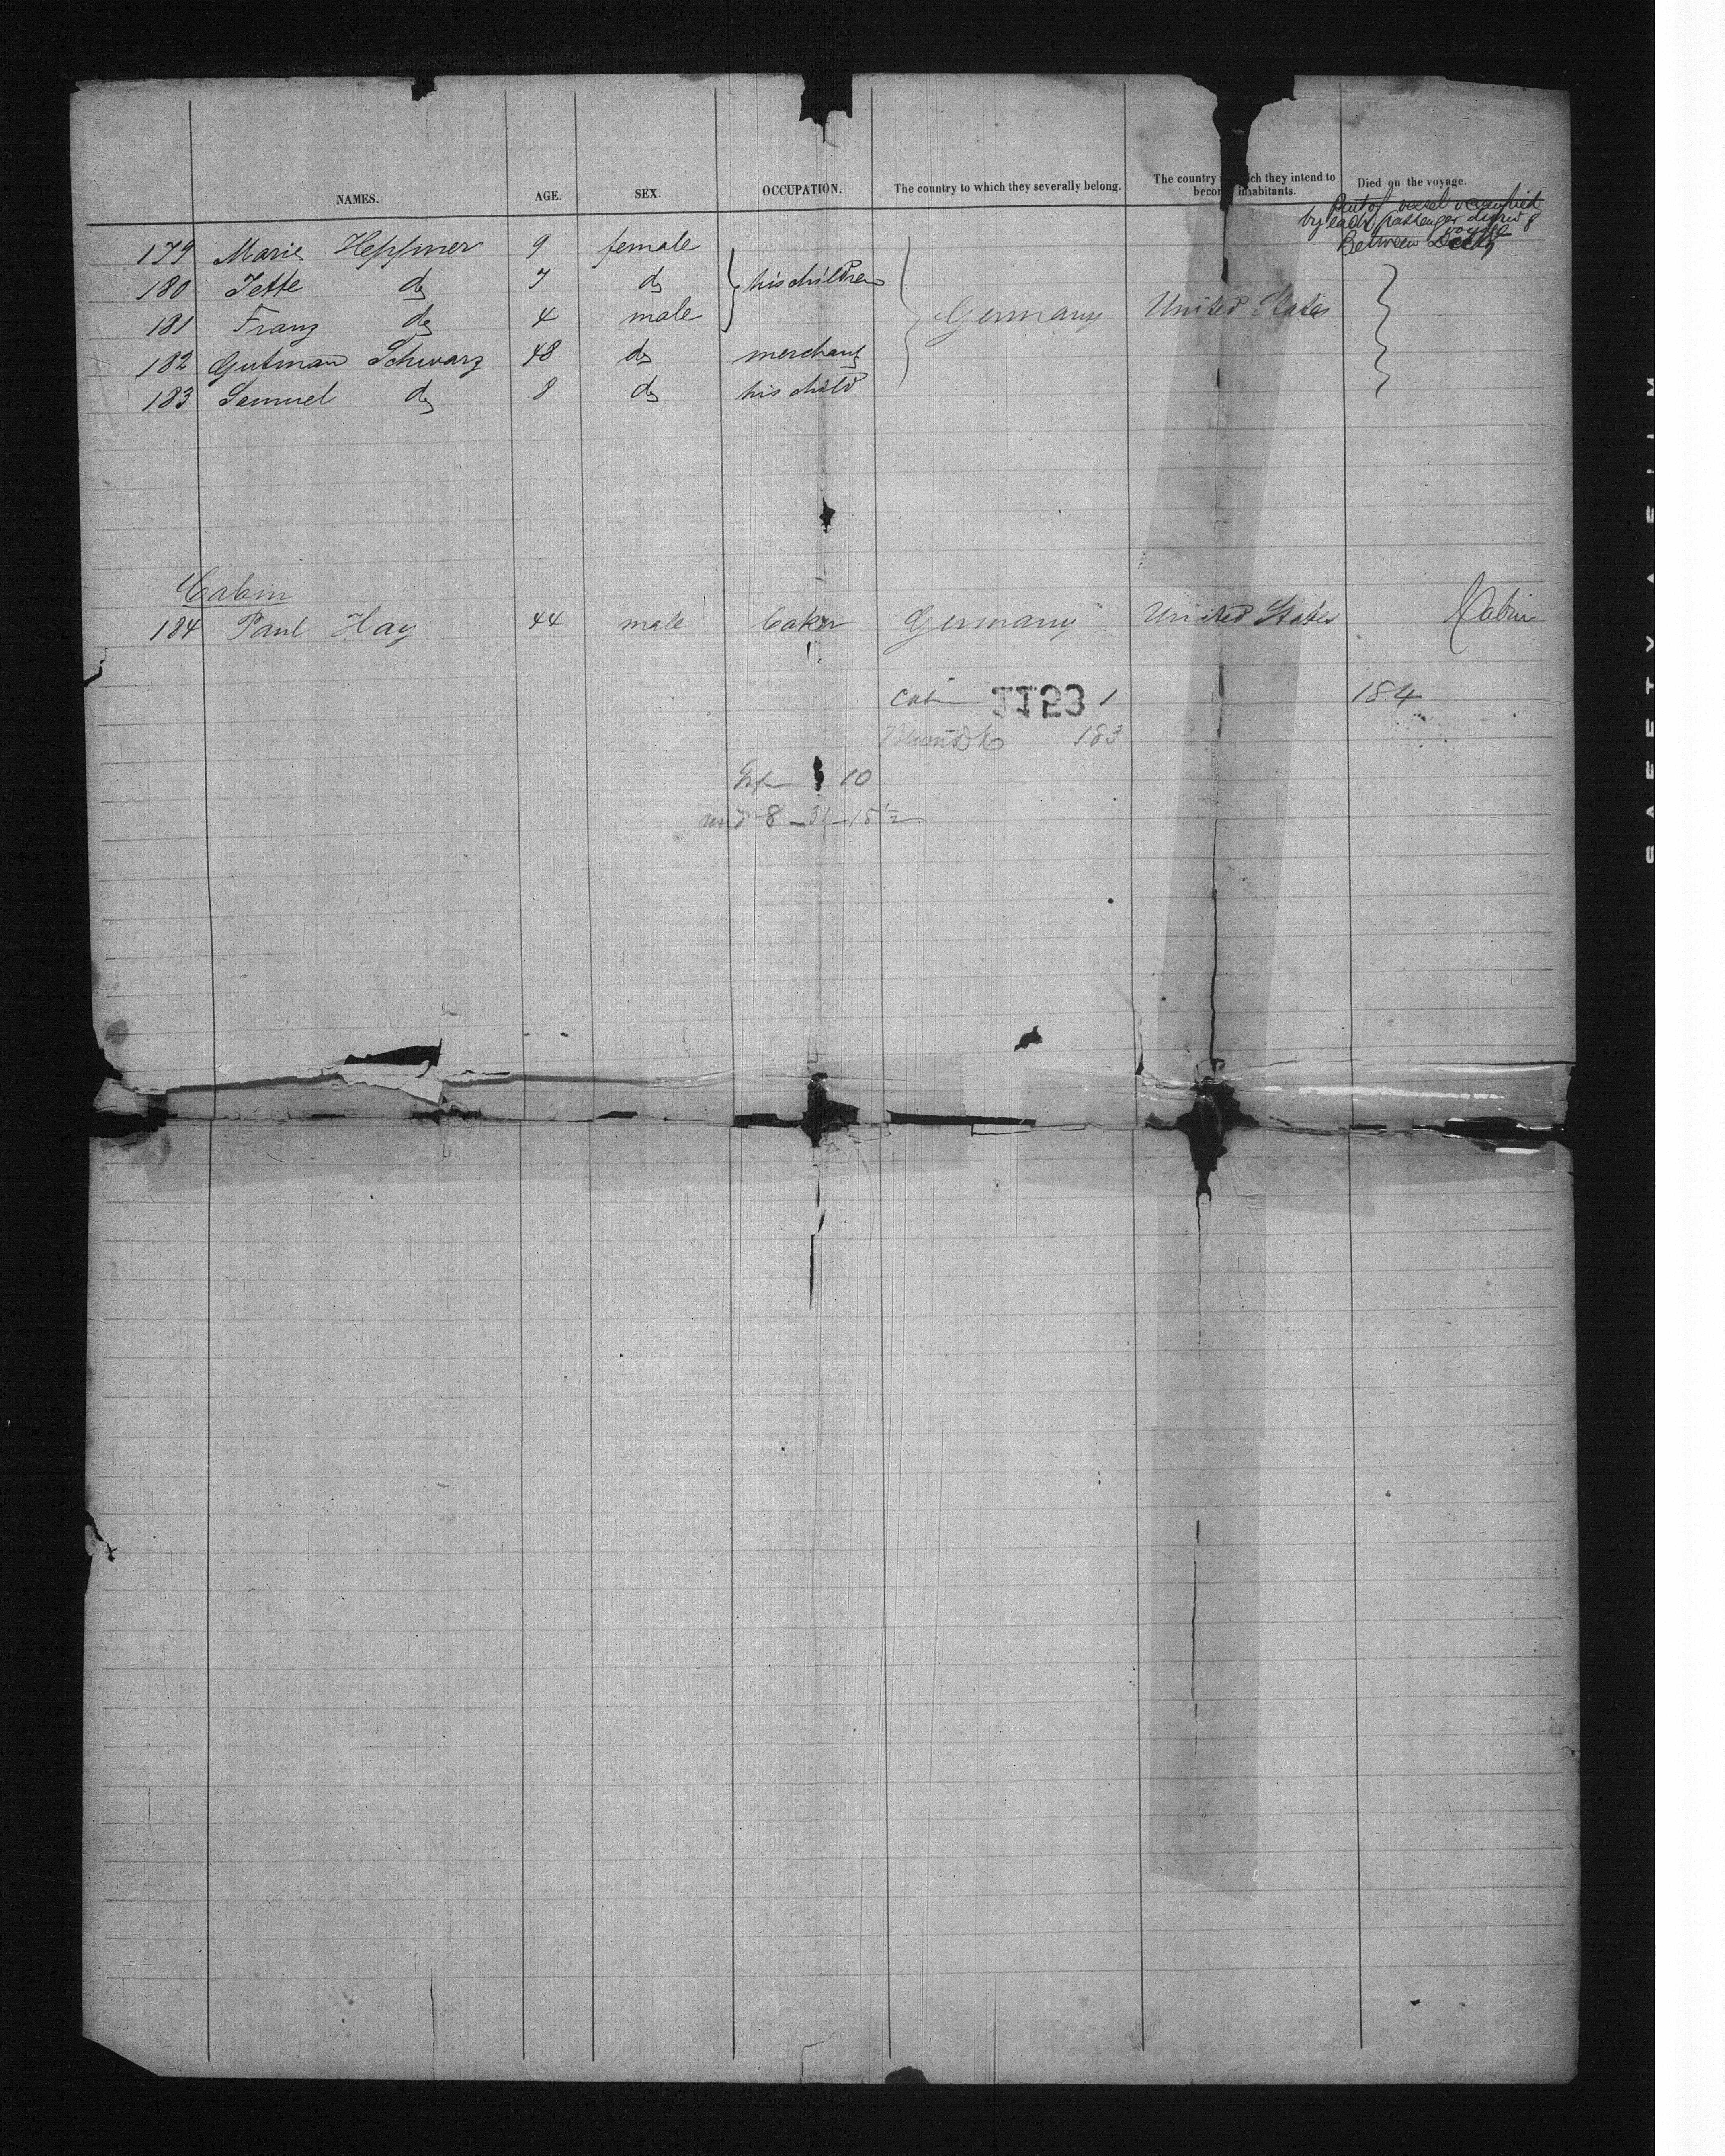 NAMES. AGE. SEX. OCCUPATION. The country to which they severally belong. The country ich they intend to become inhabitants. Died on the voyage.
Part of vessel occupied
by each passenger during
voyage
Between Decks
179 Marie Heppner 9 female
180 Jette do 7 do his children
181 Franz do 4 male Germany United States
182 Gutman Schwarz 48 do merchant
183 Samuel do 8 do his child
Cabin
184 Paul Hay 44 male baker Germany United States Cabin
Cab 1123 1 184
183
10
8 - 31 - 15 1/2
SAFETY FILM